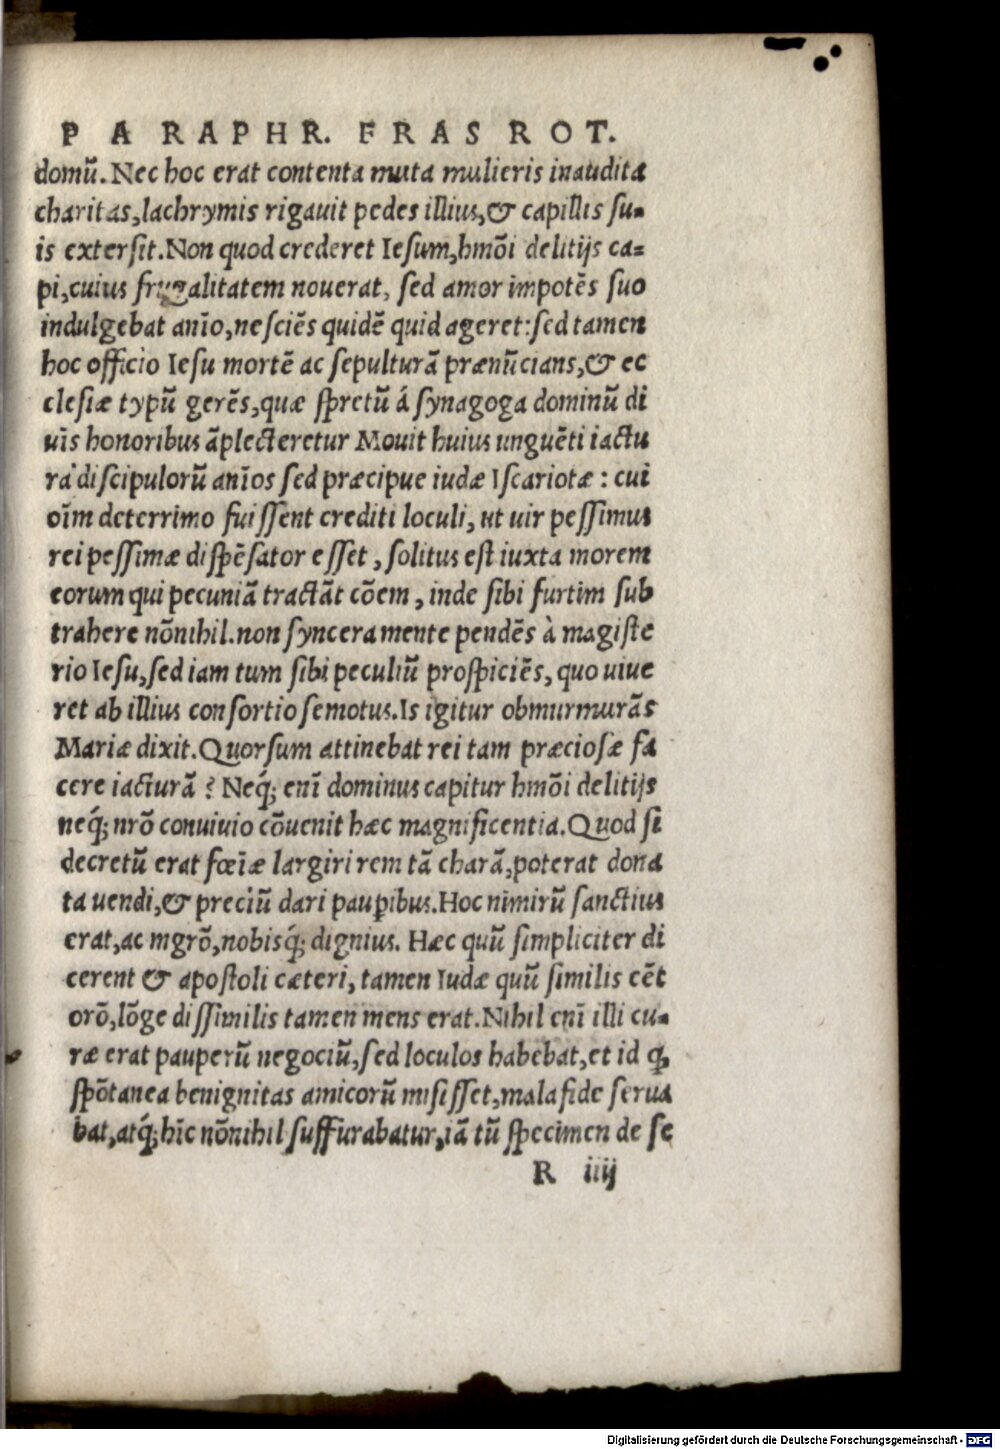 PARAPHR. FRAS ROT.
domū. Nec hoc erat contenta muta mulieris inaudita
charitas, lachrymis rigauit pedes illius, & capillis su-
is extersit. Non quod crederet Iesum, hmōi delitijs ca-
pi, cuius frugalitatem nouerat, sed amor impotēs suo
indulgebat anīo, nesciēs quidē quid ageret: sed tamen
hoc officio Iesu mortē ac sepulturā prænūcians, & ec
clesiæ typū gerēs, quæ spretū á synagoga dominū di
uīs honoribus āplecteretur Mouit huius unguēti iactu
ra discipulorū anīos sed præcipue iudæ Iscariotæ: cui
oīm deterrimo fuissent crediti loculi, ut uir pessimus
rei pessimæ dispēsator esset, solitus est iuxta morem
eorum qui pecuniā tractāt cōem, inde sibi furtim sub
trahere nōnihil. non syncera mente pendēs à magiste
rio Iesu, sed iam tum sibi peculiū prospiciēs, quo uiue
ret ab illius consortio semotus. Is igitur obmurmurās
Mariæ dixit. Quorsum attinebat rei tam præciosæ fa
cere iacturā? Neq́; enī dominus capitur hmōi delitijs
neq́; nrō conuiuio cōuenit hæc magnificentia. Quod si
decretū erat fœīæ largiri rem tā charā, poterat dona
ta uendi, & preciū dari paupibus. Hoc nimirū sanctius
erat, ac mgrō, nobisq́; dignius. Hæc quū simpliciter di
cerent & apostoli cæteri, tamen Iudæ quū similis eēt
orō, lōge dissimilis tamen mens erat. Nihil enī illi cu-
ræ erat pauperū negociū, sed loculos habebat, et id q,
spōtanea benignitas amicorū misisset, mala fide serua
bat, atq́; hīc nōnihil suffurabatur, iā tū specimen de se
R iiij
Digitalisierung gefördert durch die Deutsche Forschungsgemeinschaft - DFG